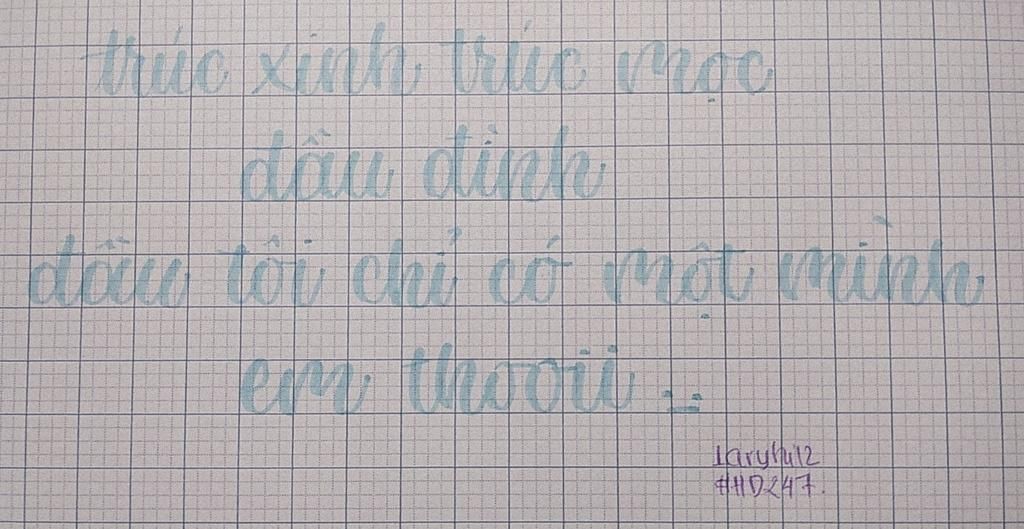 trúc xinh trúc mọc
đầu đình
đầu tôi chỉ có một mình
em thooii
#HD247.